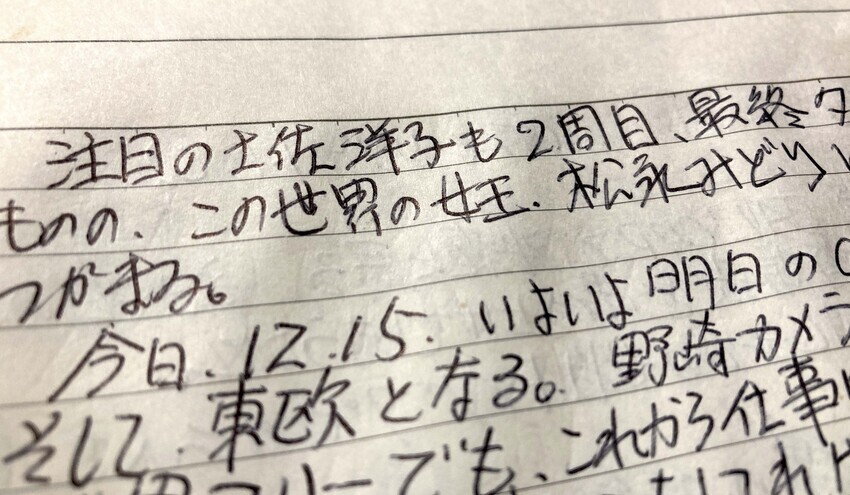 注目の土佐洋子も2周目、最終
ものの、この世界の女王、松永みどり
つかまる。
今日、12.15. いよいよ明日の
そして、東欧となる。野崎カメラ
でも、これから仕事